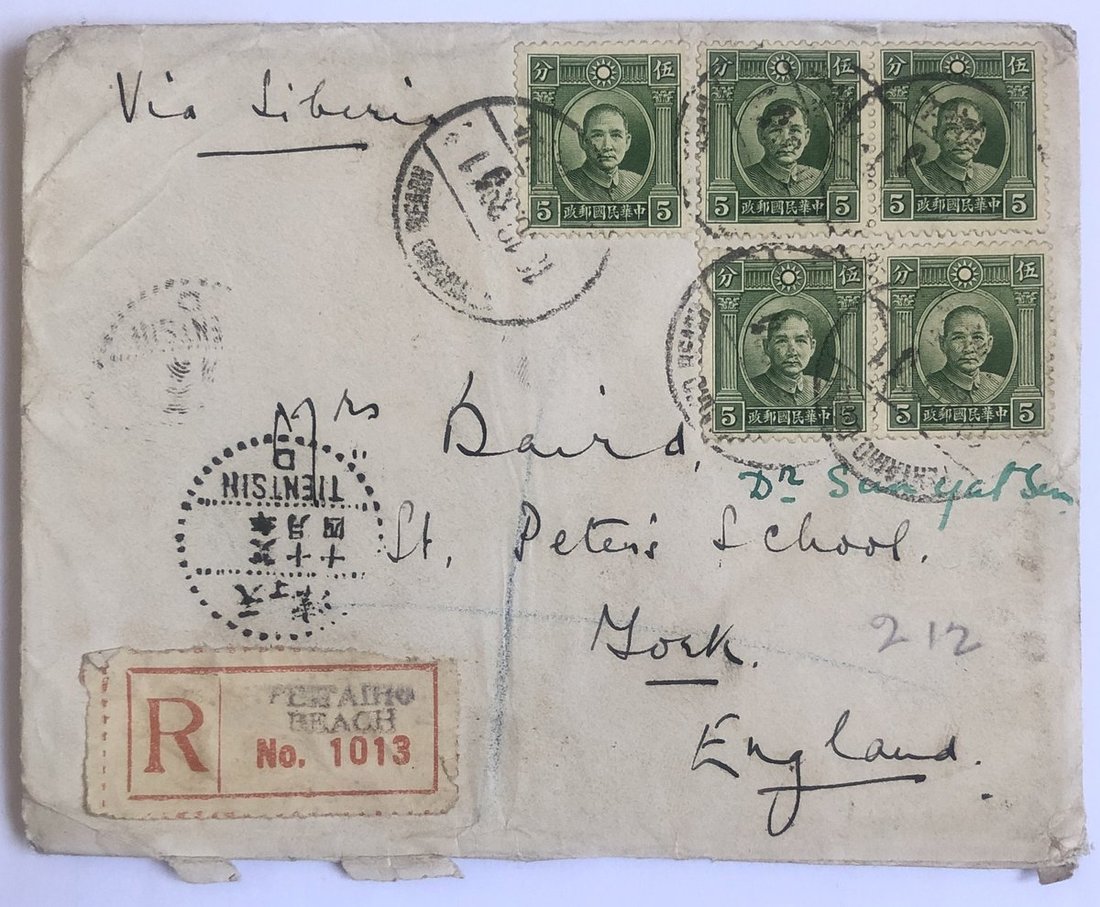 Via Siberia
分 伍
5 中華民國郵政 5
分 伍
5 中華民國郵政 5
分 伍
5 中華民國郵政 5
分 伍
5 中華民國郵政 5
分 伍
5 中華民國郵政 5
BEACH
Mrs Baird,
Dr Sun Yat Sen
St. Peter's School.
York.
England.
212
TIENTSIN
R
PEITAIHO
BEACH
No. 1013